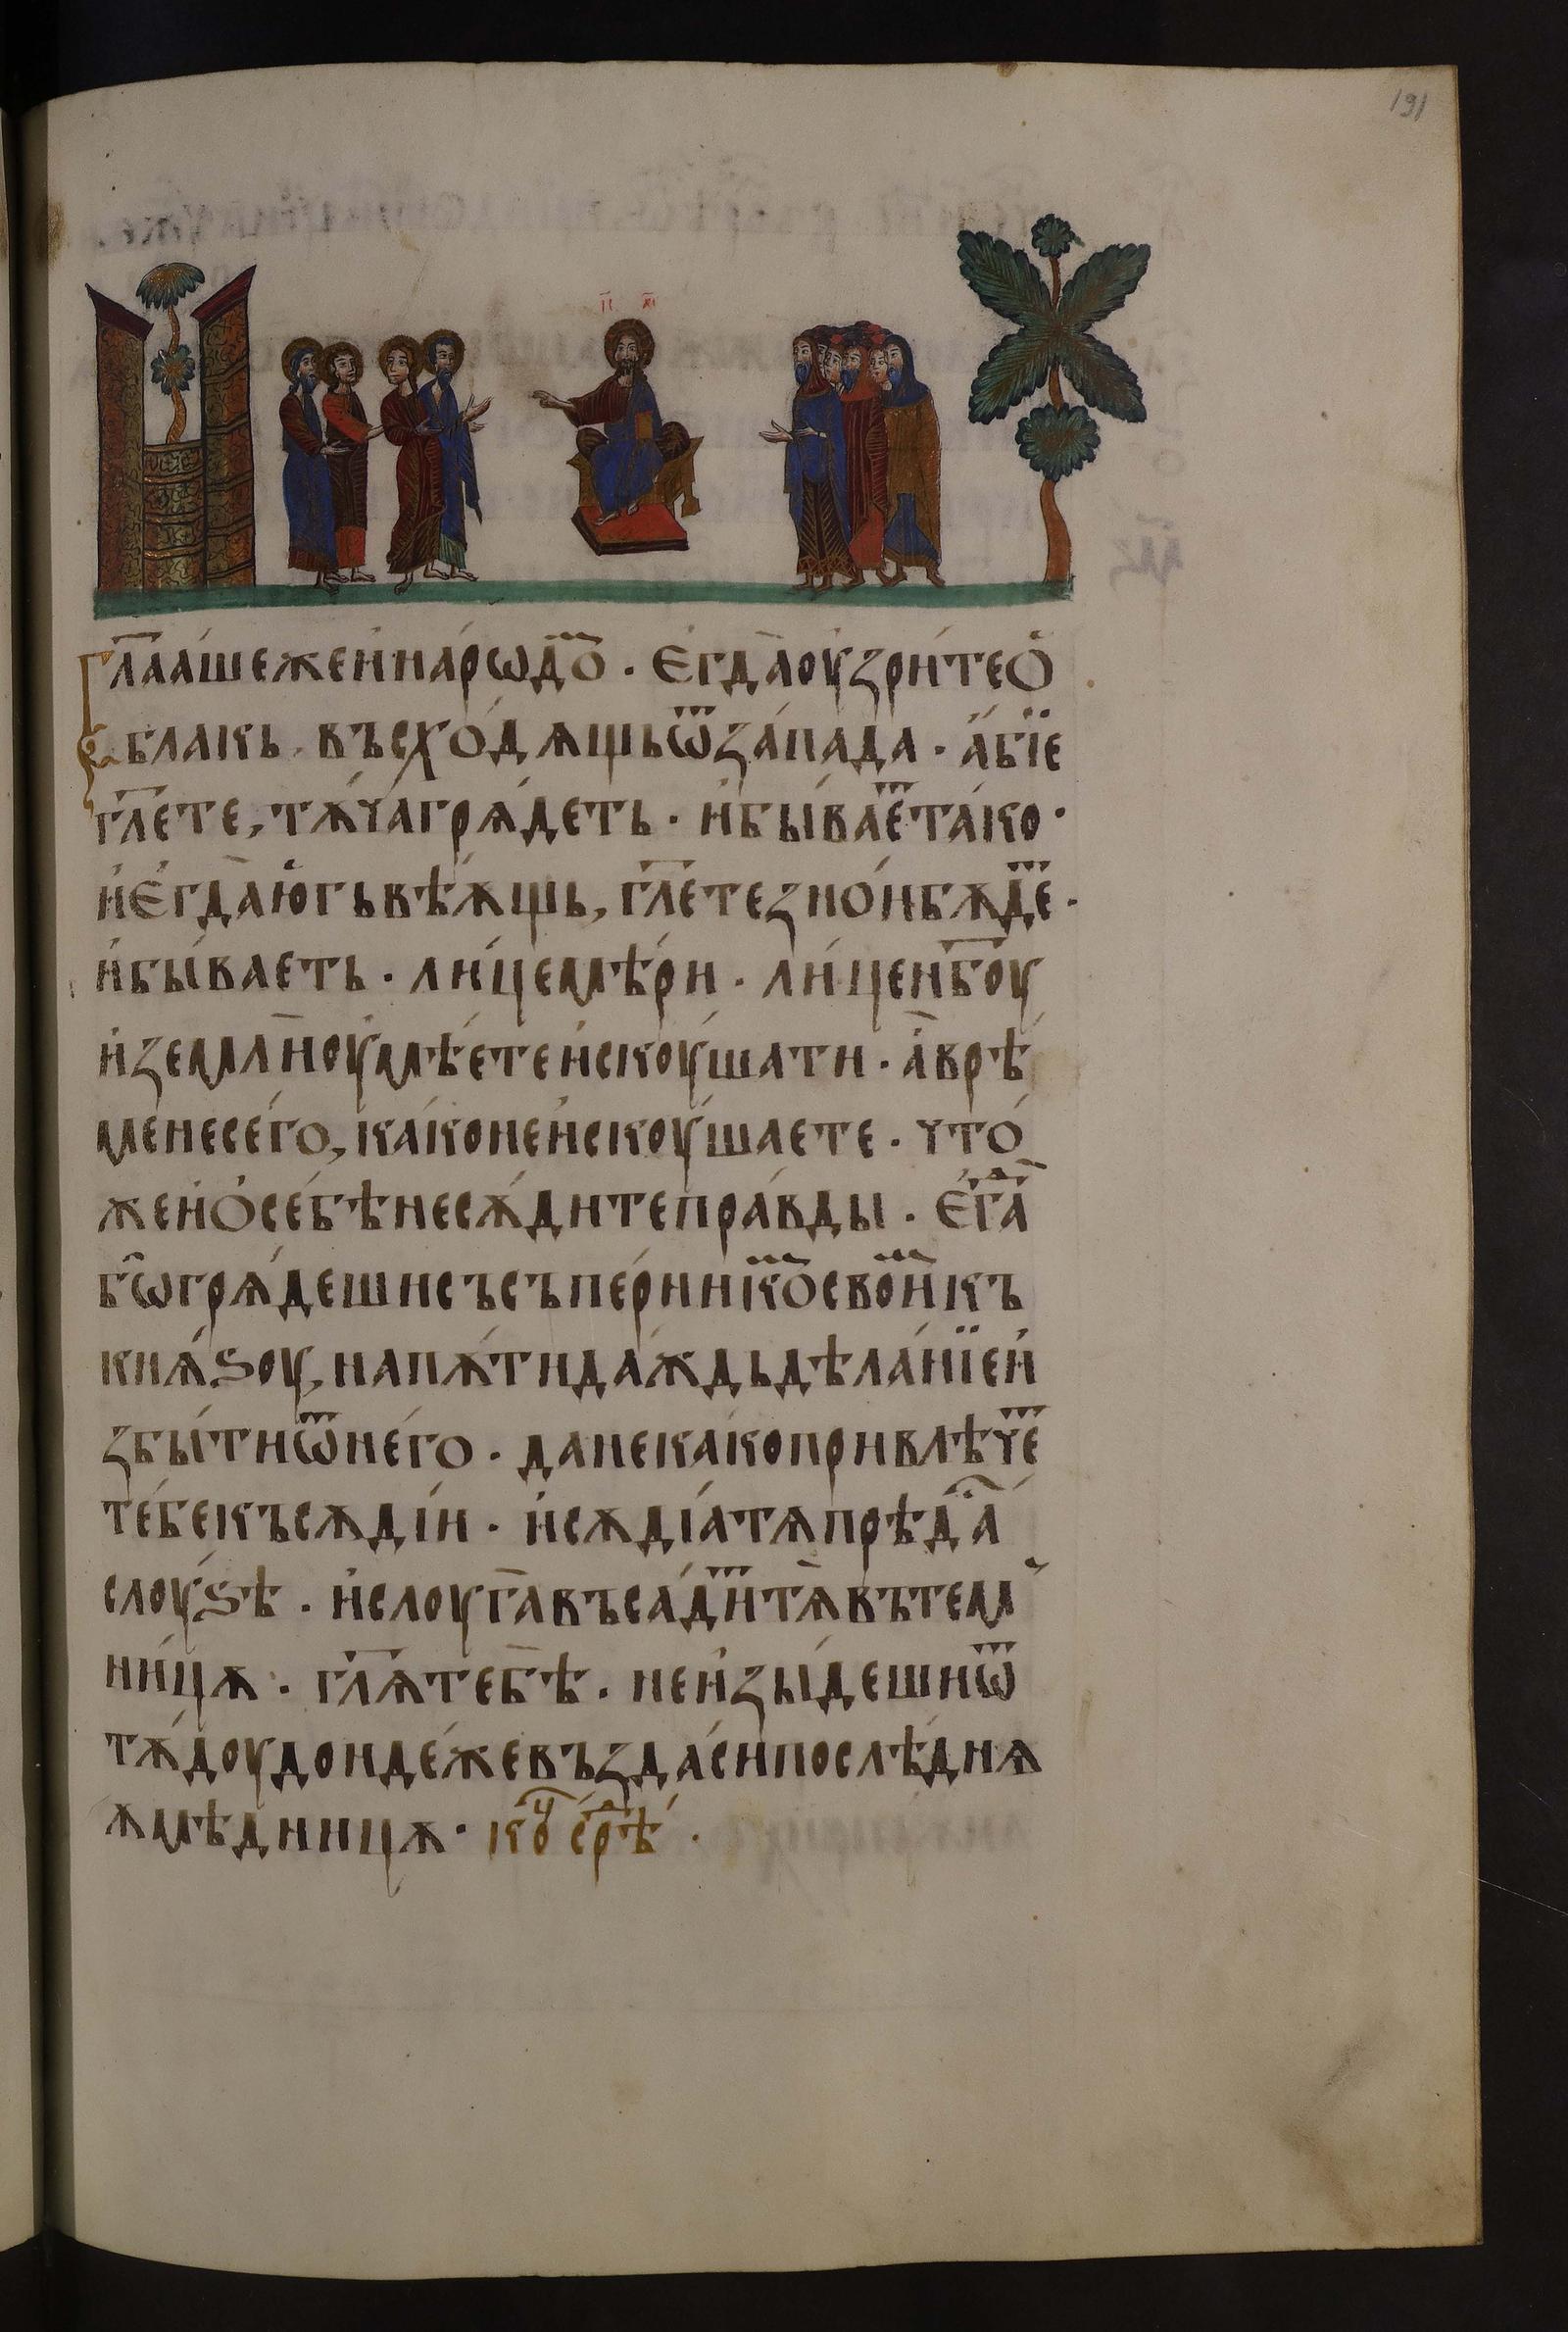 191
І҃С Х҃С
Гл҃ааше же и҆ народѡⷨ . Є҆гда оу҆зри́те ѻ҆
блакь въсхо́дѧщь ѿ за́пада . а҆́бїе
гл҃ете, тѫ́ча грѧ́деть . и҆ быва́еⷮ та́ко .
и҆ є҆гда ю҆гь вѣѫщь, гл҃ете зно́и бѫдеⷮ .
и҆ быва́еть . лицемѣ́ри . лице нб҃оу
и҆ земли оу҆мѣ́ете и҆скоу́шати . а҆ врѣ́
мене сего̀, ка́ко не и҆скоу́шаете . что́
же и҆ ѻ҆ се́бѣ не сѫ́дите пра́вды . є҆гⷣа
бѡ грѧ́деши съ съпе́рникоⷨ свои́ⷨ къ
кнѧ́ѕоу, на пѫ́ти да́ждь дѣла́нїе и҆
збы́ти ѿ него̀ . да не ка́ко привлѣчеⷮ
те́бе къ сѫдїи . и҆ сѫдїа́ тѧ прѣдаⷭ
слоуѕѣ́ . и҆ слоуга въса́диⷮ тѧ въ тем
ни́цѫ . гл҃ѧ тебѣ . не и҆зы́деши ѿ
тѫ́доу до́ндеже въздаси́ послѣ́днѧ
ѫ мѣ́дницѫ . коⷰ҇ срⷣѣ .